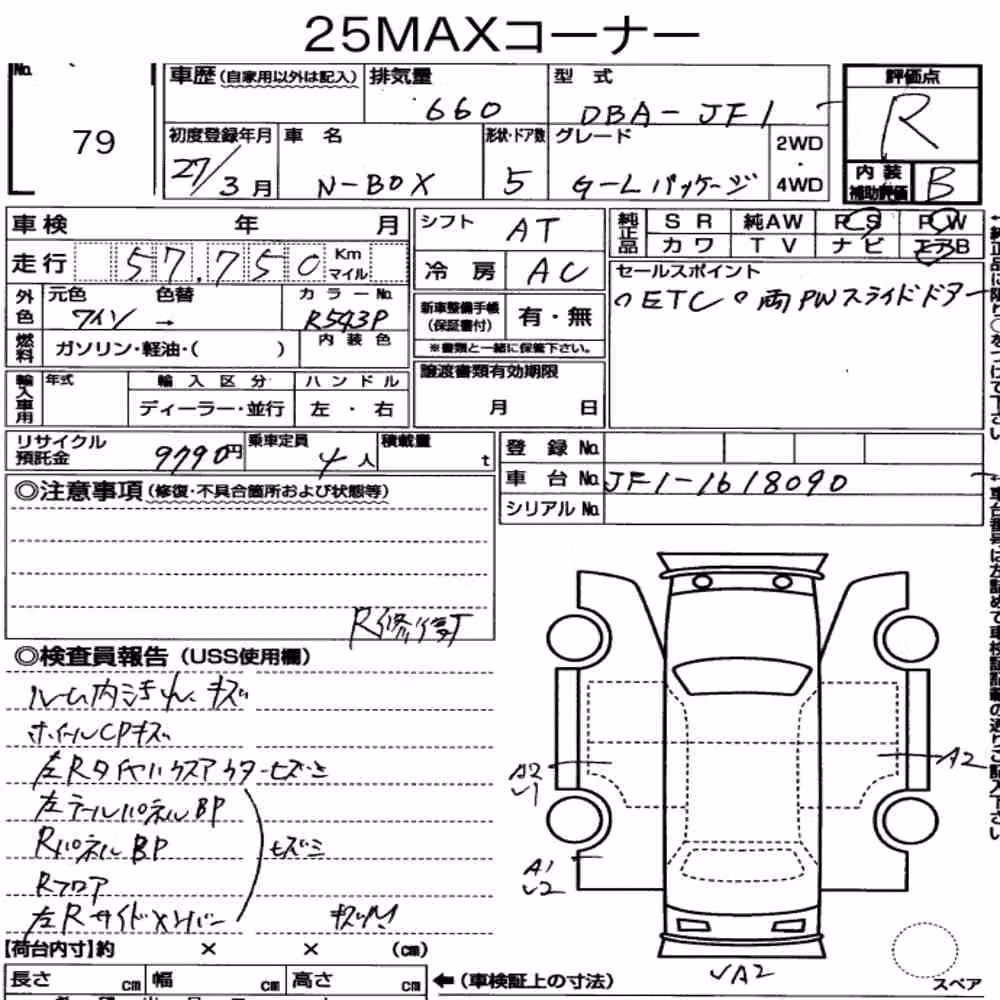 25MAXコーナー
No. 79
車歴(自家用以外は記入) 排気量 660 型式 DBA-JF1 評価点 R
初度登録年月 27/3月 車名 N-BOX 形状・ドア数 5 グレード G-Lパッケージ 2WD・4WD 内装補助評価 B
車検 年 月 シフト AT 純正品 SR 純AW PS PW
走行 57,750 Km マイル 冷房 AC カワ TV ナビ エアB
外色 元色 ワイン 色替 → カラーNo. R543P 新車整備手帳(保証書付) 有・無 セールスポイント
○ETC ○両PWスライドドア
※書類と一緒に保管下さい。
燃料 ガソリン・軽油・( ) 内装色
譲渡書類有効期限 月 日
輸入車用 年式 輸入区分 ハンドル
ディーラー・並行 左・右
リサイクル預託金 9790円 乗車定員 4人 積載量 t
登録No.
車台No. JF1-1618090
シリアルNo.
◎注意事項(修復・不具合箇所および状態等)
R修復
◎検査員報告(USS使用欄)
ルーム内汚れ、キズ
ホイールCPキズ
左Rタイヤハウスアウターヒズミ
左テールパネルBP
RパネルBP ヒズミ
Rフロア
左Rサイドメンバー
A2
A2
A1
【荷台内寸】約 × × (cm)
長さ cm 幅 cm 高さ cm ←(車検証上の寸法)
スペア